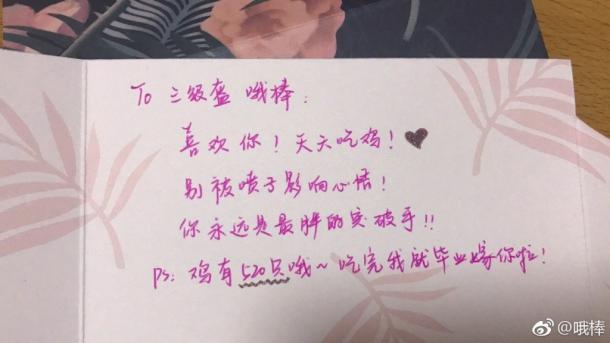 To 三级盔 哦棒：
喜欢你！天天吃鸡！
别被喷子影响心情！
你永远是最胖的突破手!!
Ps：鸡有520只哦~吃完我就毕业嫁你啦！
@哦棒